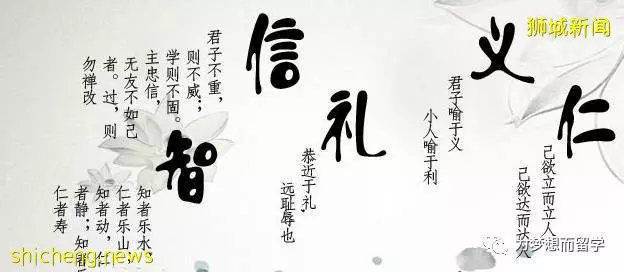 狮城新闻
仁
己欲立而立人
己欲达而达人
义
君子喻于义
小人喻于利
礼
恭近于礼,
远耻辱也
信
君子不重,
则不威;
学则不固。
主忠信,
无友不如己
者。过,则
勿禅改
智
知者乐水
仁者乐山,
知者动,仁
者静;知者
仁者寿
为梦想而留学
shicheng.news